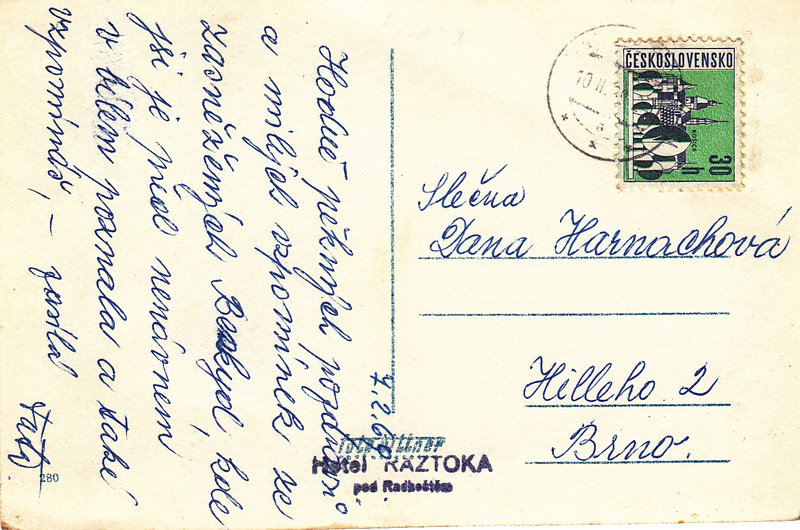 7.2.69
Hodně pěkných pozdravů
a milých vzpomínek ze
zasněžených Beskyd, kde
jsi je před nedávnem
v bílém poznala a také
vzpomínáš, – zasílá
280
foto Bittner
Hotel RÁZTOKA
pod Radhoštěm
ČESKOSLOVENSKO
30
h
Slečna
Dana Harnachová
Hilleho 2
Brno.